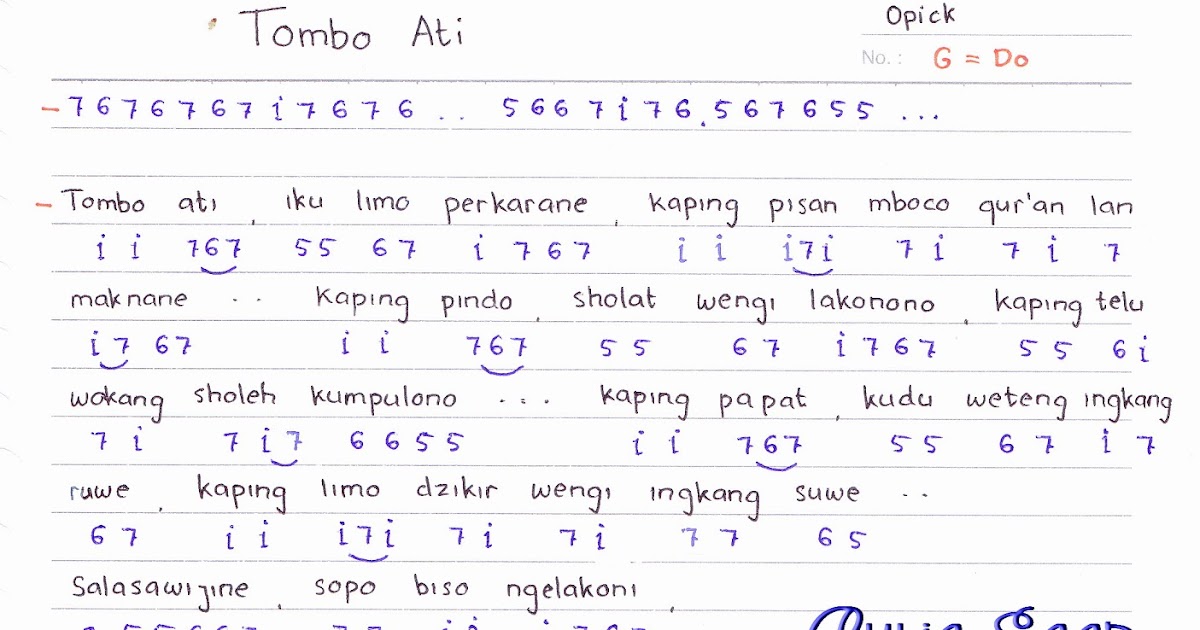 Tombo Ati
Opick
No. : G = Do
- 7 6 7 6 7 6 7 i 7 6 7 6 . . 5 6 6 7 i 7 6 . 5 6 7 6 5 5 ...
- Tombo ati , iku limo perkarane , kaping pisan mboco qur'an lan
i i 767 55 67 i 767 i i i7i 7 i 7 i 7
maknane .. kaping pindo , sholat wengi lakonono , kaping telu
i7 67 i i 767 5 5 67 i767 5 5 6i
wokang sholeh kumpulono ... kaping papat , kudu weteng ingkang
7 i 7 i7 6 6 5 5 i i 767 5 5 6 7 i 7
ruwe , kaping limo dzikir wengi ingkang suwe ..
6 7 i i i7i 7 i 7 i 7 7 6 5
Salasawijine , sopo biso ngelakoni ,